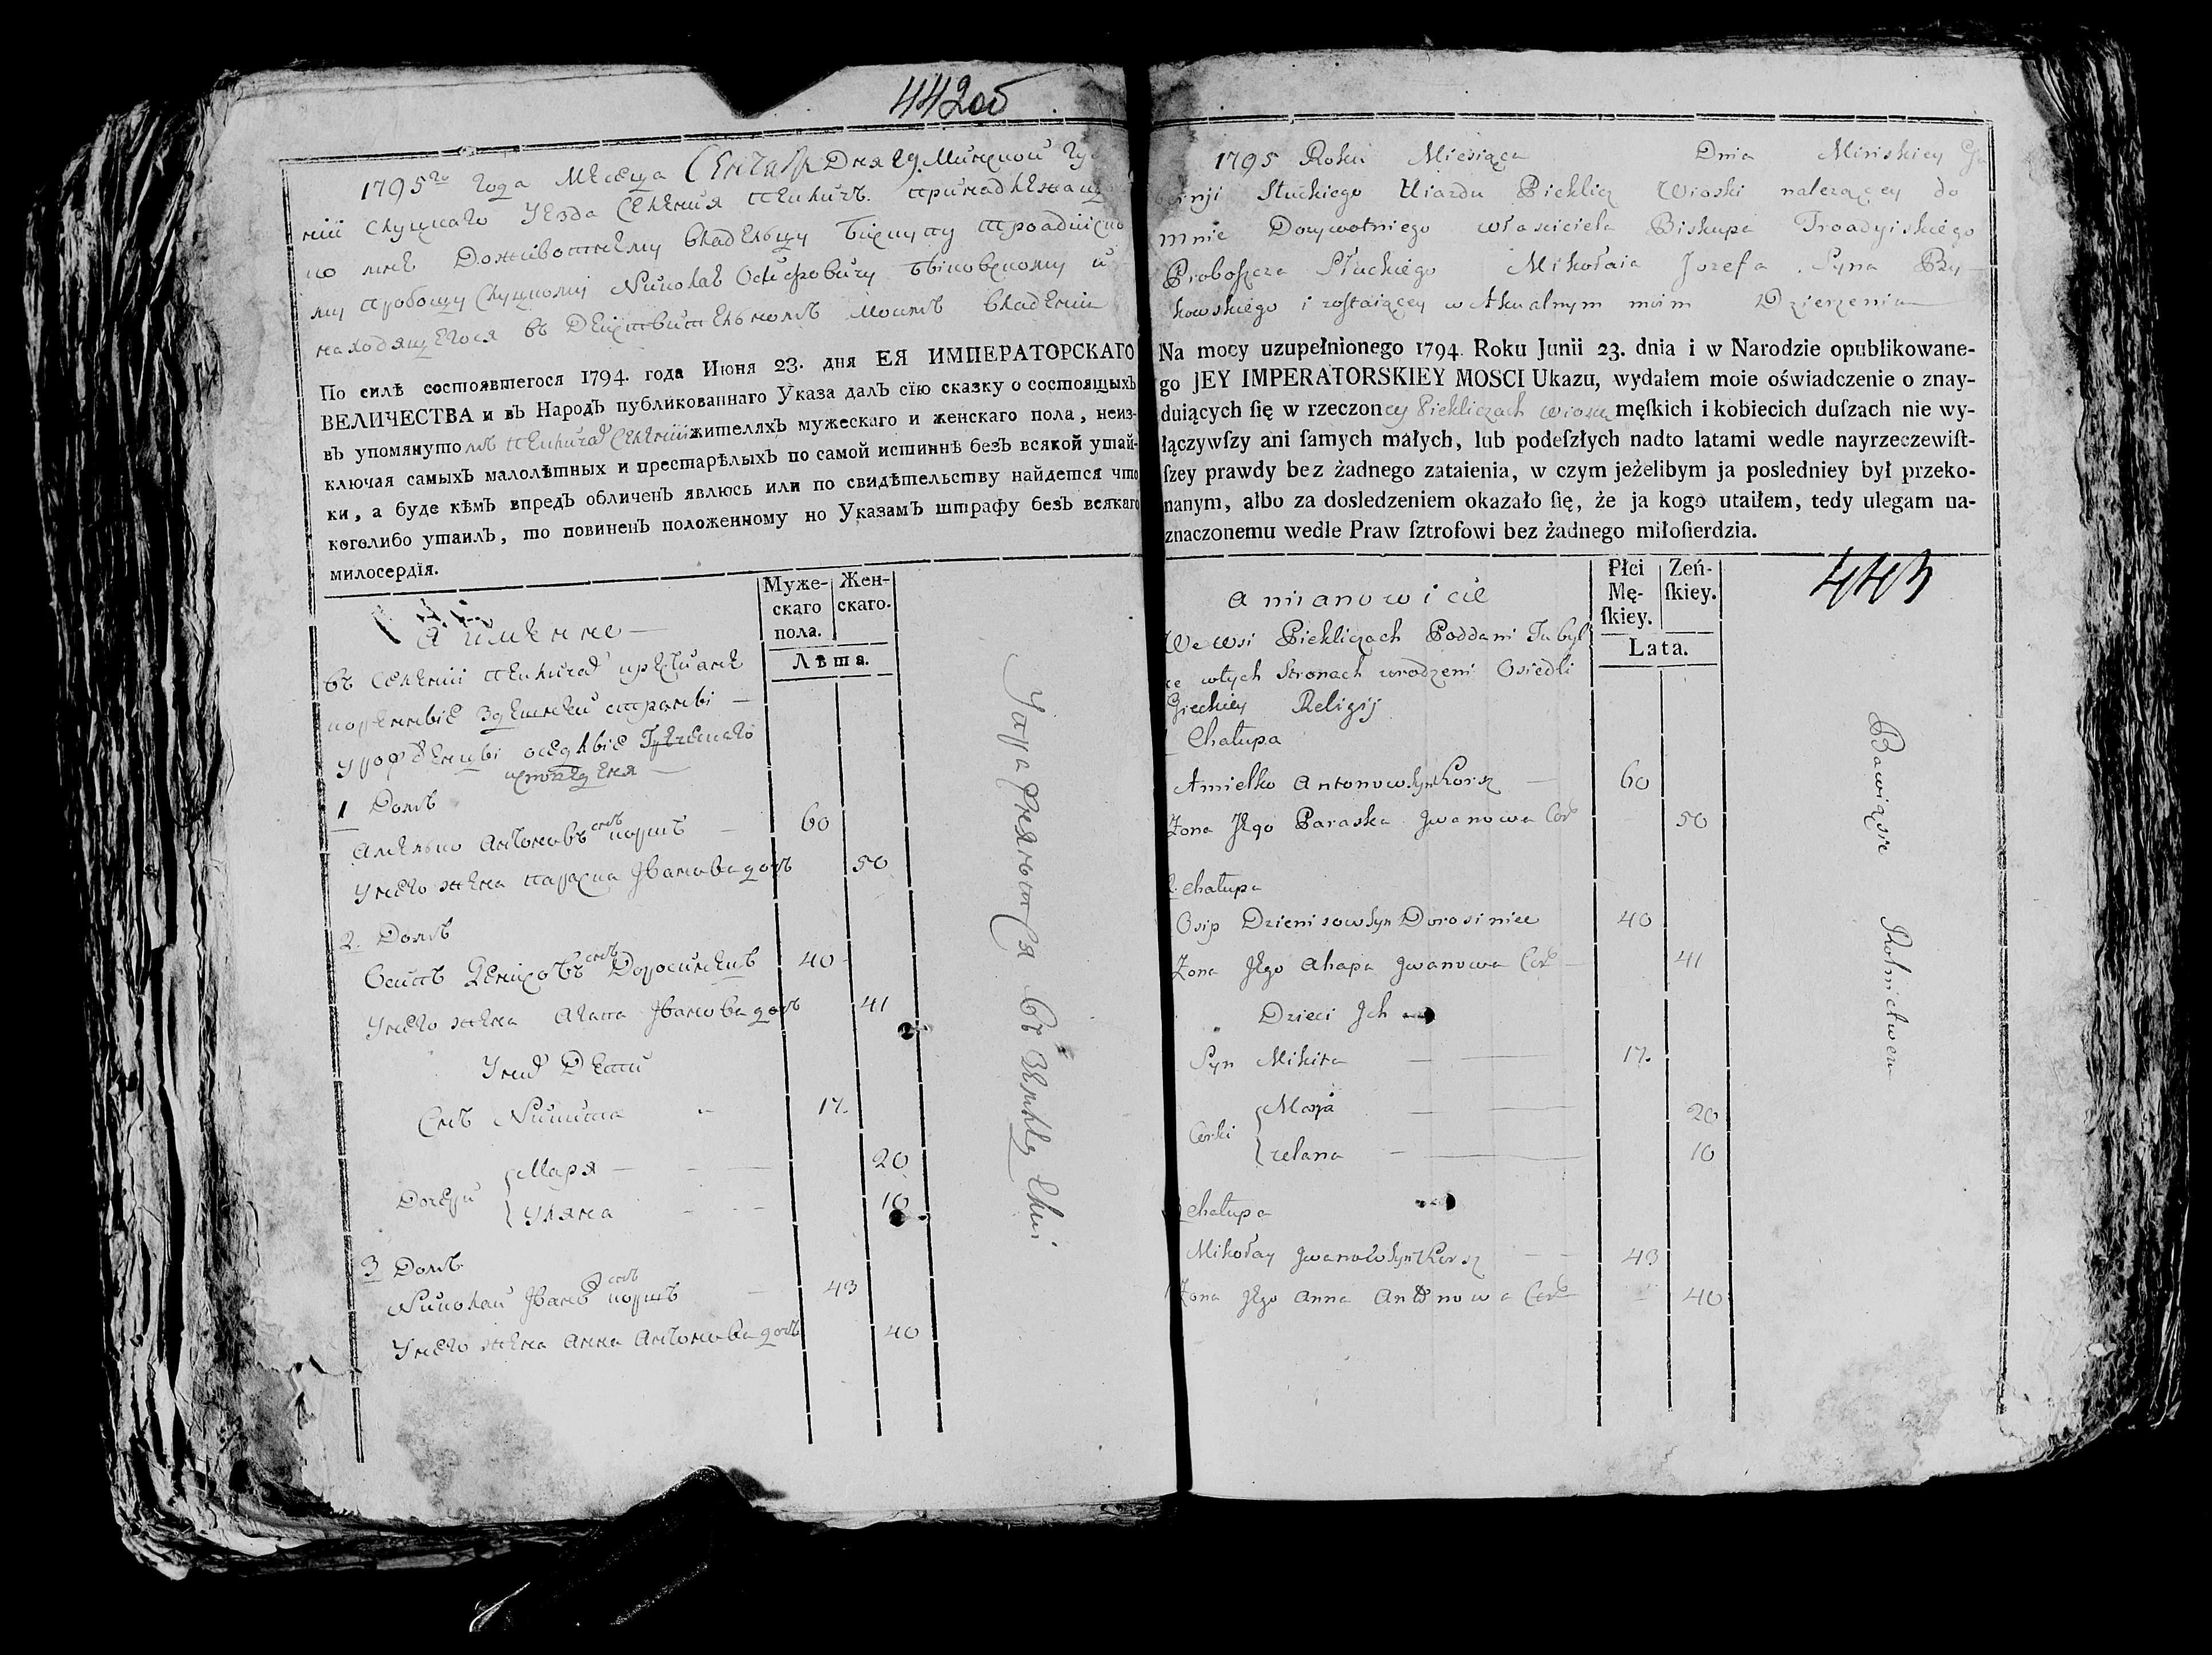 442 об
1795го Года Месеца Сентабр Дня 29. Минской Гу
нии Слуцкаго Уезда Селения Пекличъ. принадлежаща
го мне Доживотнему владельцу Бискупу Троадийско
му пробощу Слуцкому Николаю Осифовичу Быковскому и
находящегося въ Действительномъ моемъ владении
По силѣ состоявшегося 1794. года Июня 23. дня ЕЯ ИМПЕРАТОРСКАГО
ВЕЛИЧЕСТВА и въ Народъ публикованнаго Указа далъ сїю сказку о состоящыхъ
въ упомянутомъ Пекличах Селении жителяхъ мужескаго и женскаго пола, неиз-
ключая самыхъ малолѣтныхъ и престарѣлыхъ по самой истиннѣ безъ всякой утай-
ки, а буде кѣмъ впредъ обличенъ явлюсь или по свидѣтельству найдется что
коголибо утаилъ, то повиненъ положенному по Указамъ штрафу безъ всякаго
милосердїя.
Муже-
скаго
пола.
Жен-
скаго.
Лѣта.
А именно
въ Селении Пекличах крестиане
коренные здешней страны
урожденцы оседлые Греческаго
исповеденя
1 Домъ
Амелько Антоновъ снъ коршъ 60
У него жена Параска Иванова дочъ 50
2. Домъ
Осипъ Денисовъ снъ Доросинецъ 40
У него жена Агапа Иванова дочъ 41
У них Дети
Снъ Никита 17.
Дочери
Маря 20
Уляна 10
3 Домъ
Николай Иванов снъ коршъ 43
У него жена Анна Антонова дочъ 40
Упражняются въ Земледелии
1795 Roku Miesiąca Dnia Minskiey Gu
bernji Słuckiego Uiazdu Pieklicz Wioski nalezącey do
mnie Dozywotniego własciciela Biskupa Troadyiskiego
Proboszcza Słuckiego Mikołaia Jozefa Syna By-
kowskiego i zostaiącey w Aktualnym moim Dzierzeniu
Na mocy uzupełnionego 1794. Roku Junii 23. dnia i w Narodzie opublikowane-
go JEY IMPERATORSKIEY MOSCI Ukazu, wydałem moie oświadczenie o znay-
duiących ſię w rzeczoney Piekliczach wiosce męſkich i kobiecich duſzach nie wy-
łączywſzy ani ſamych małych, lub podeſzłych nadto latami wedle nayrzeczewiſt-
ſzey prawdy bez żadnego zataienia, w czym jeżelibym ja posledniey był przeko-
nanym, albo za dosledzeniem okazało ſię, że ja kogo utaiłem, tedy ulegam na-
znaczonemu wedle Praw ſztrofowi bez żadnego miłoſierdzia.
Płci
Mę-
ſkiey.
Zeń-
ſkiey.
Lata.
443
a mianowicie
We wsi Piekliczach Poddani Tubyl
ce w tych Stronach urodzeni Osiedli
Greckiey Religij
Chałupa
Amielko Antonow Syn Korsz 60
Zona Jego Paraska Jwanowa Cor 50
2. Chałupa
Osip Dzienisow Syn Dorosiniec 40
Zona Jego Ahapa Jwanowa Cor 41
Dzieci Jch
Syn Mikita 17.
Corki
Marja 20
relana 10
Chałupa
Mikołay Jwanow Syn Korsz 43
Zona Jego Anna Antonowa Cor 40
Bawią się Rolnictwem